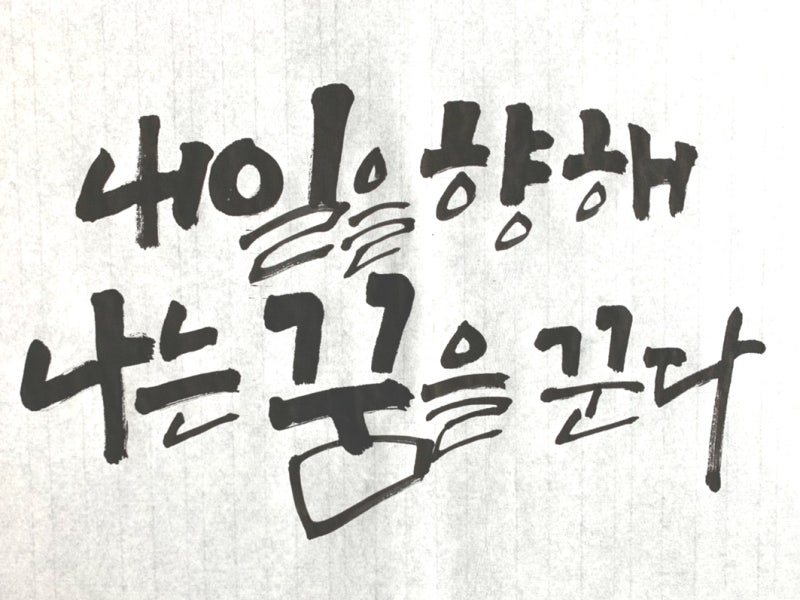 내일을 향해
나는 꿈을 꾼다